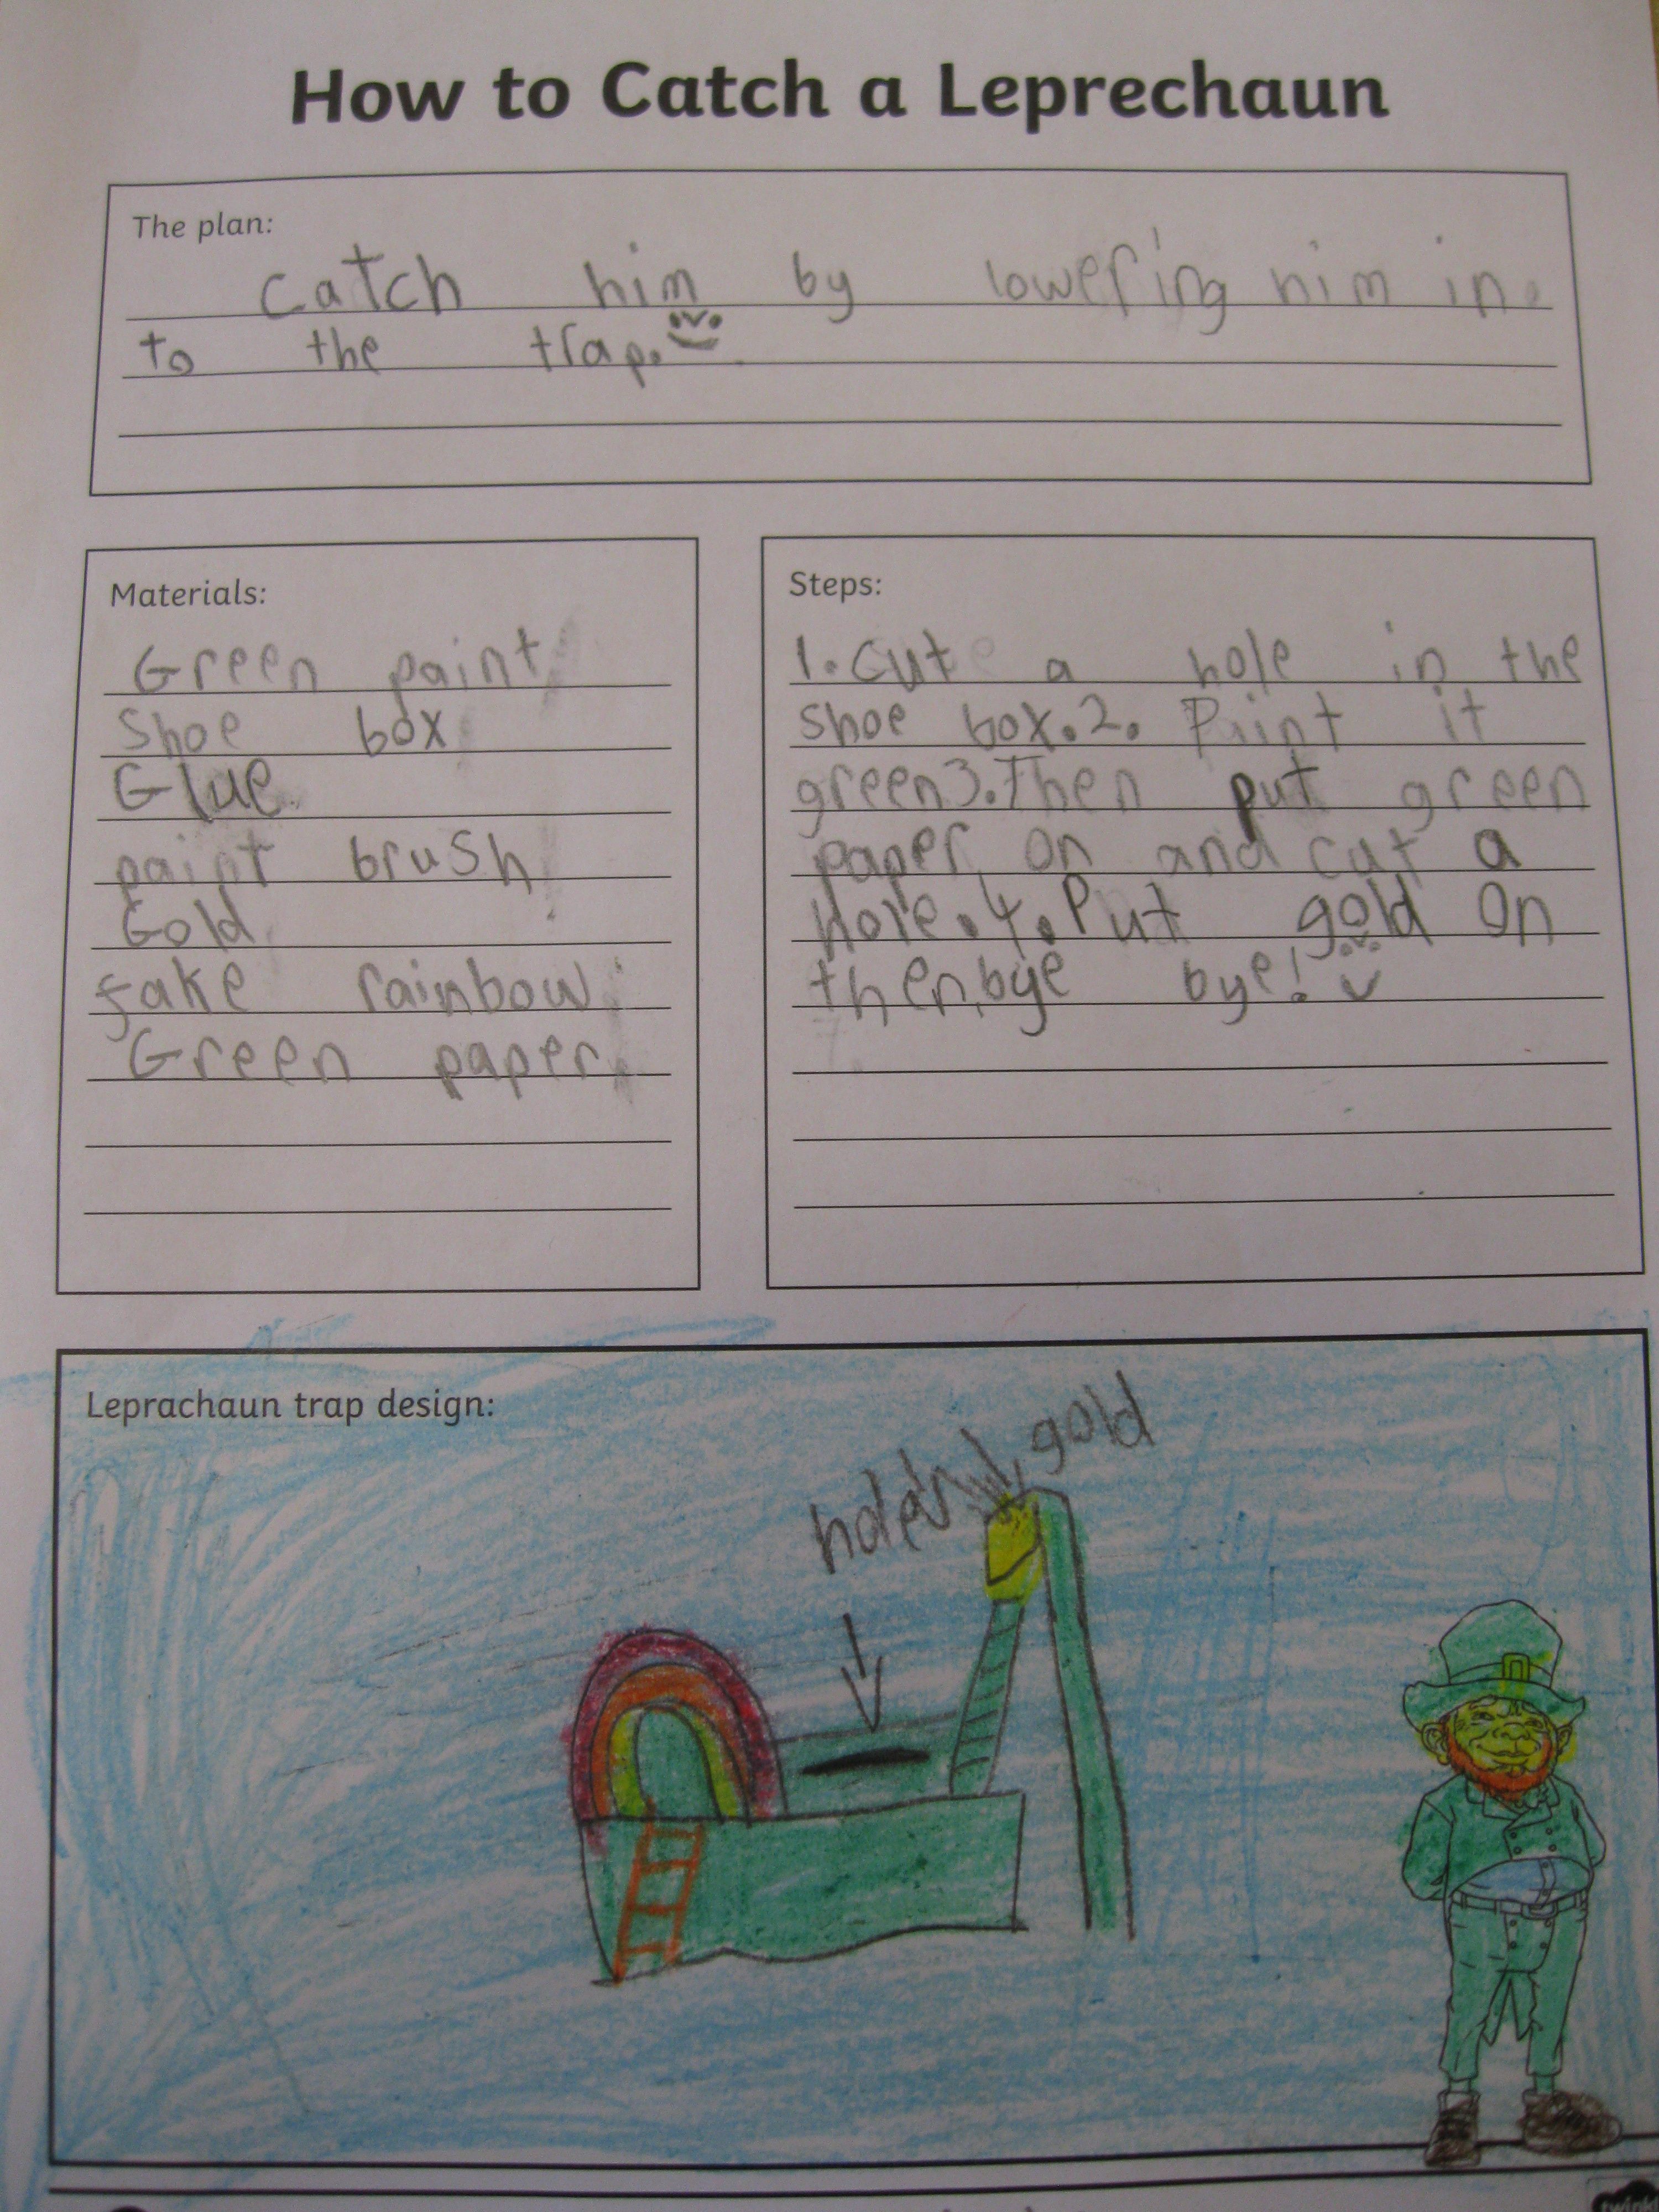 How to Catch a Leprechaun
The plan:
catch him by lowering him in
to the trap.
Materials:
Green paint
Shoe box
Glue
paint brush
Gold
fake rainbow
Green paper.
Steps:
1. Cut a hole in the
shoe box. 2. Paint it
green 3. Then put green
paper on and cut a
hole. 4. Put gold on
then, bye bye!
Leprachaun trap design:
gold
hole